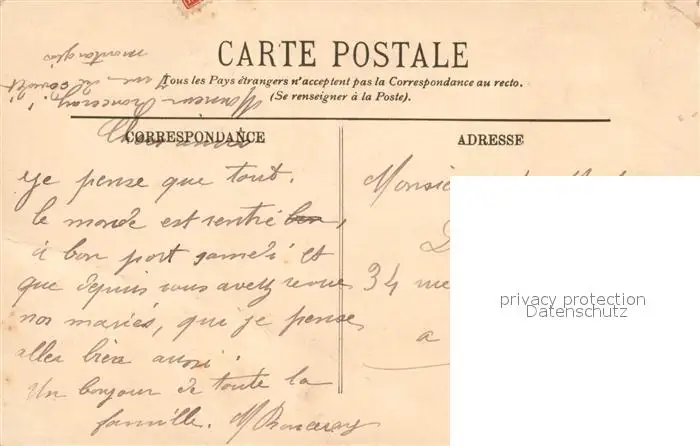 CARTE POSTALE
Tous les Pays étrangers n'acceptent pas la Correspondance au recto.
(Se renseigner à la Poste).
CORRESPONDANCE
ADRESSE
Chers amis
Je pense que tout
le monde est rentré bon,
à bon port samedi et
que depuis vous avez revu
nos mariés, qui je pense,
allez bien aussi.
Un bonjour de toute la
famille. M Ronceray
Monsieur Ronceray
rue de
montargis
34 rue
a
privacy protection
Datenschutz